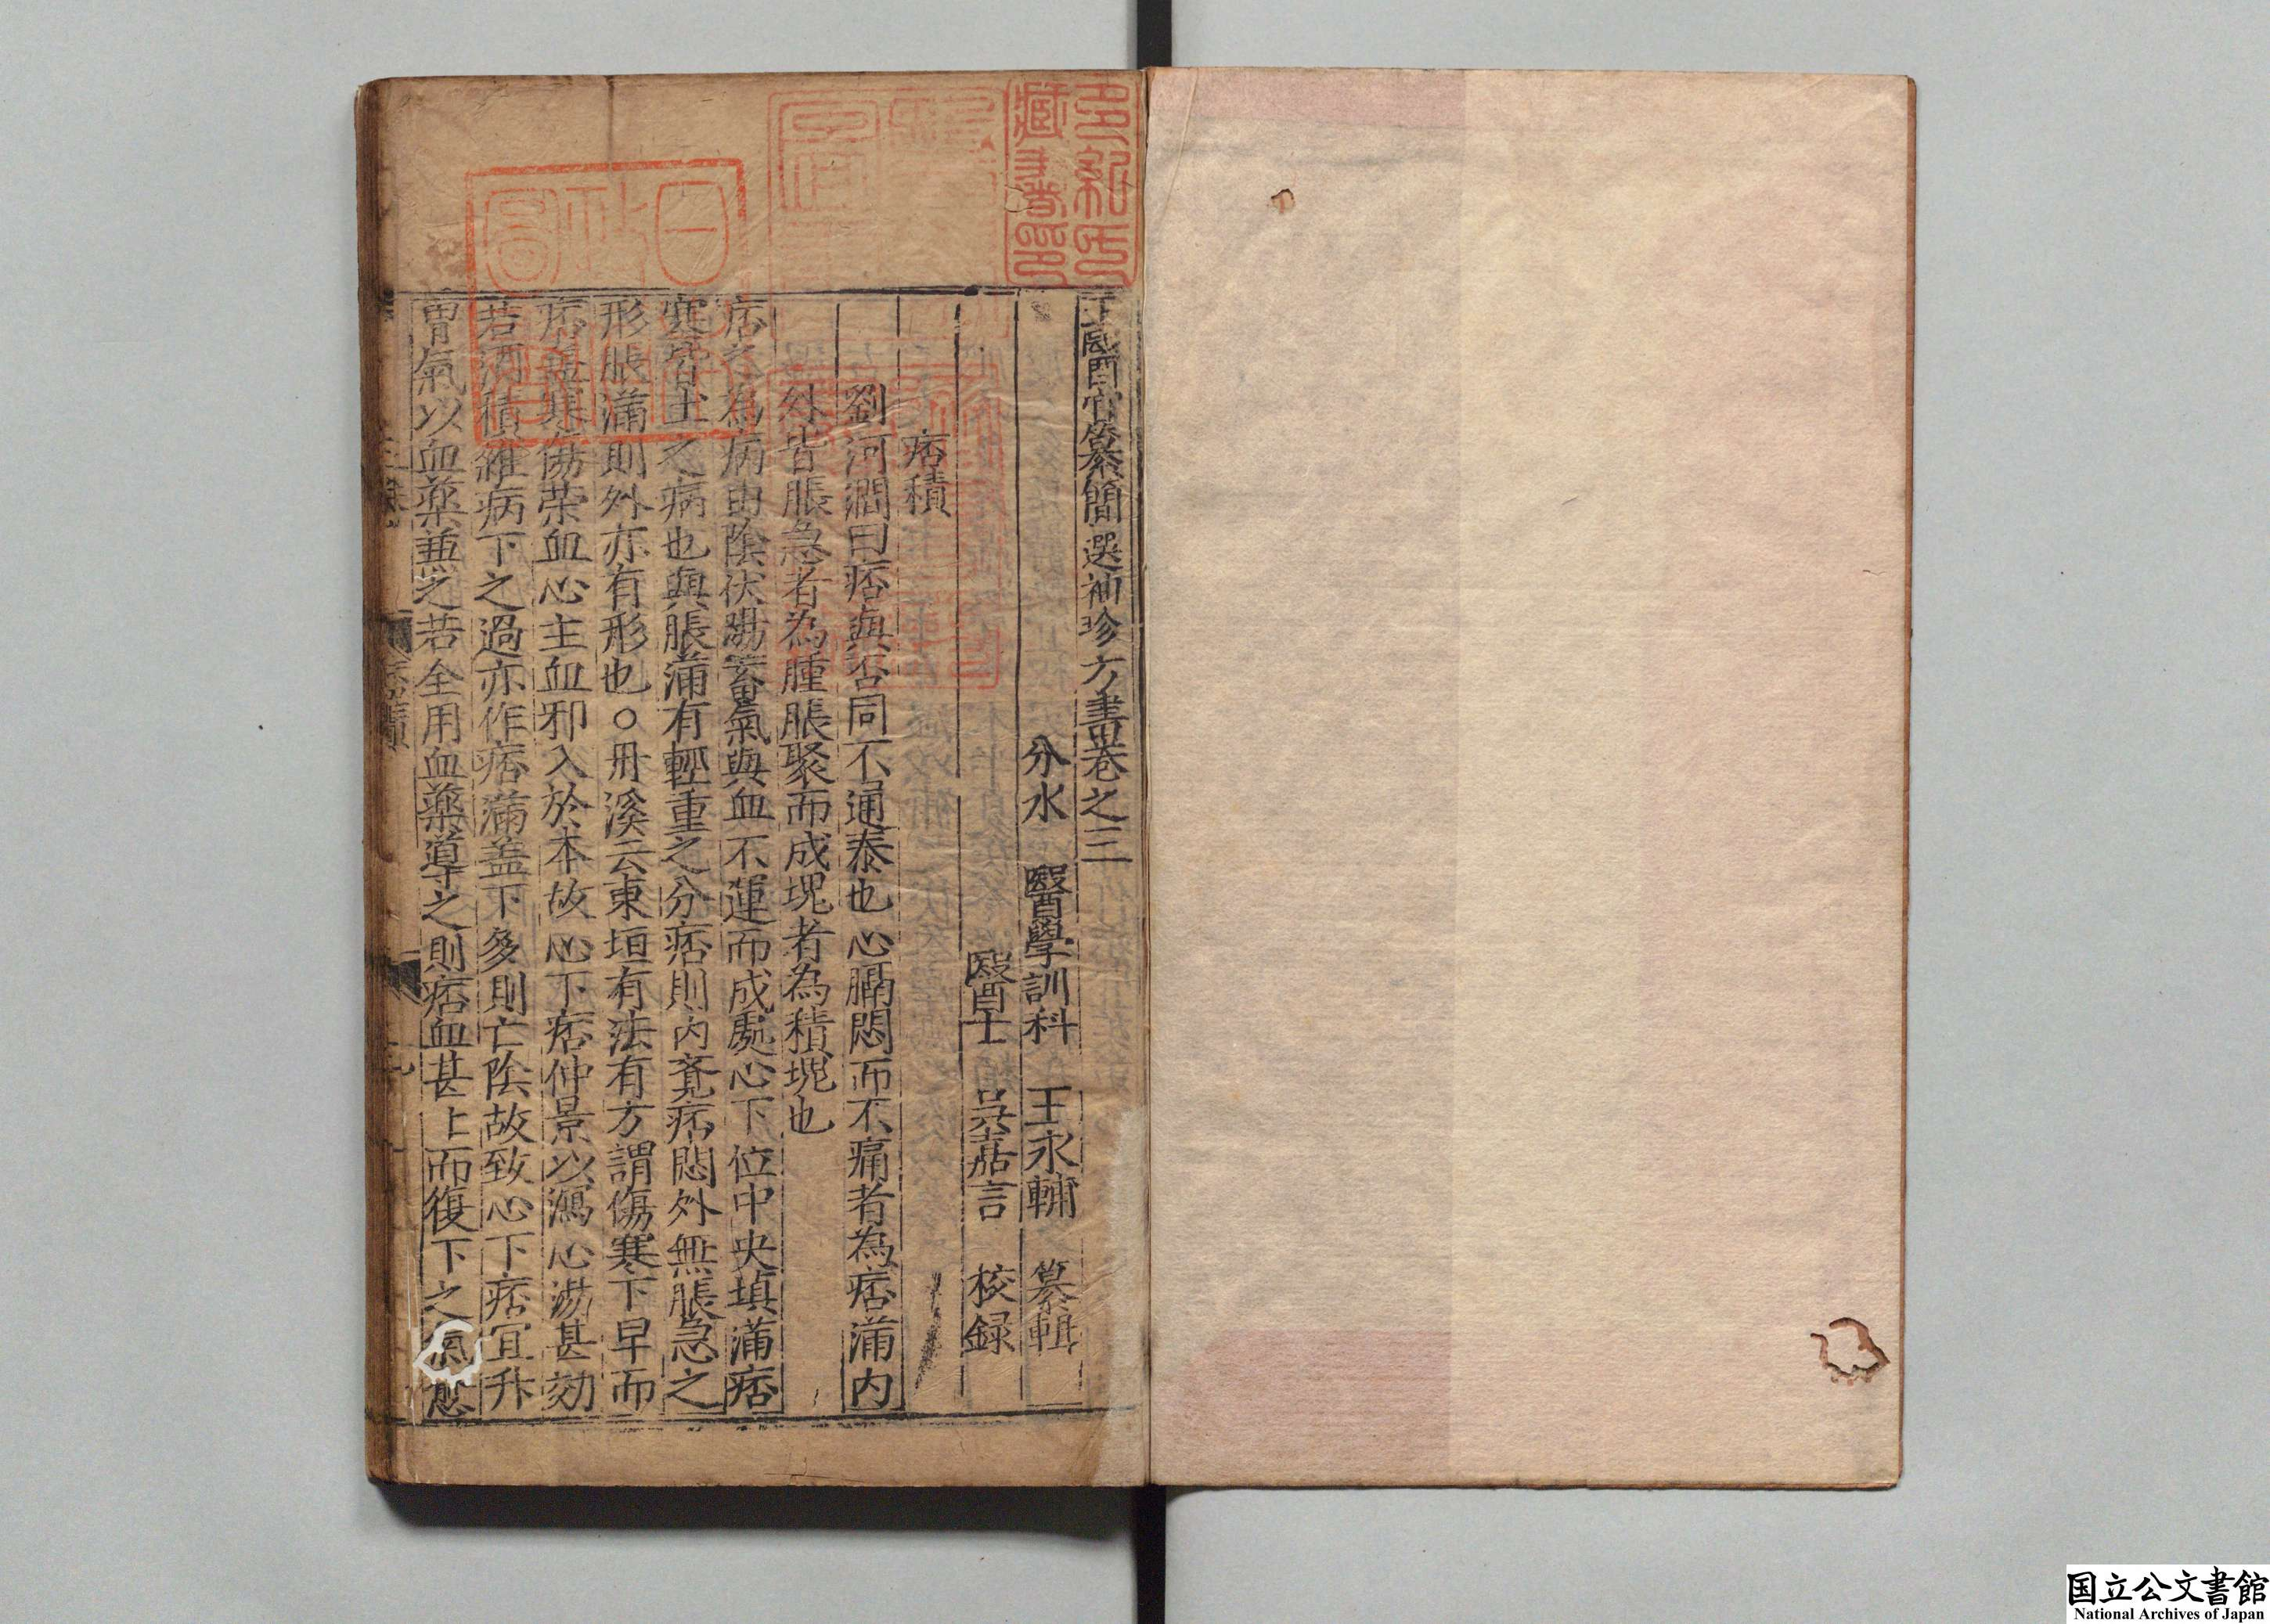 醫官纂簡選袖珍方書卷之三
分水　醫學訓科　王永輔　纂輯
醫士　吳嘉言　校録
痞積
劉河澗曰痞與否同不通泰也心膈悶而不痛者為痞滿内
外皆脹急者為腫脹聚而成塊者為積塊也
痞之為病由陰伏陽蓄氣與血不運而成處心下位中央填滿痞
寒皆土之病也與脹滿有輕重之分痞則内覺痞悶外無脹急之
形脹滿則外亦有形也〇丹溪云東垣有法有方謂傷寒下早而
痞盖寒傷荣血心主血邪入於本故心下痞仲景以瀉心湯甚効
若酒積雜病下之過亦作痞滿盖下多則亡陰故致心下痞宜升
胃氣以血藥兼之若全用血藥導之則痞血甚上而復下之氣愈
多紀氏
藏書印
国立公文書館
National Archives of Japan